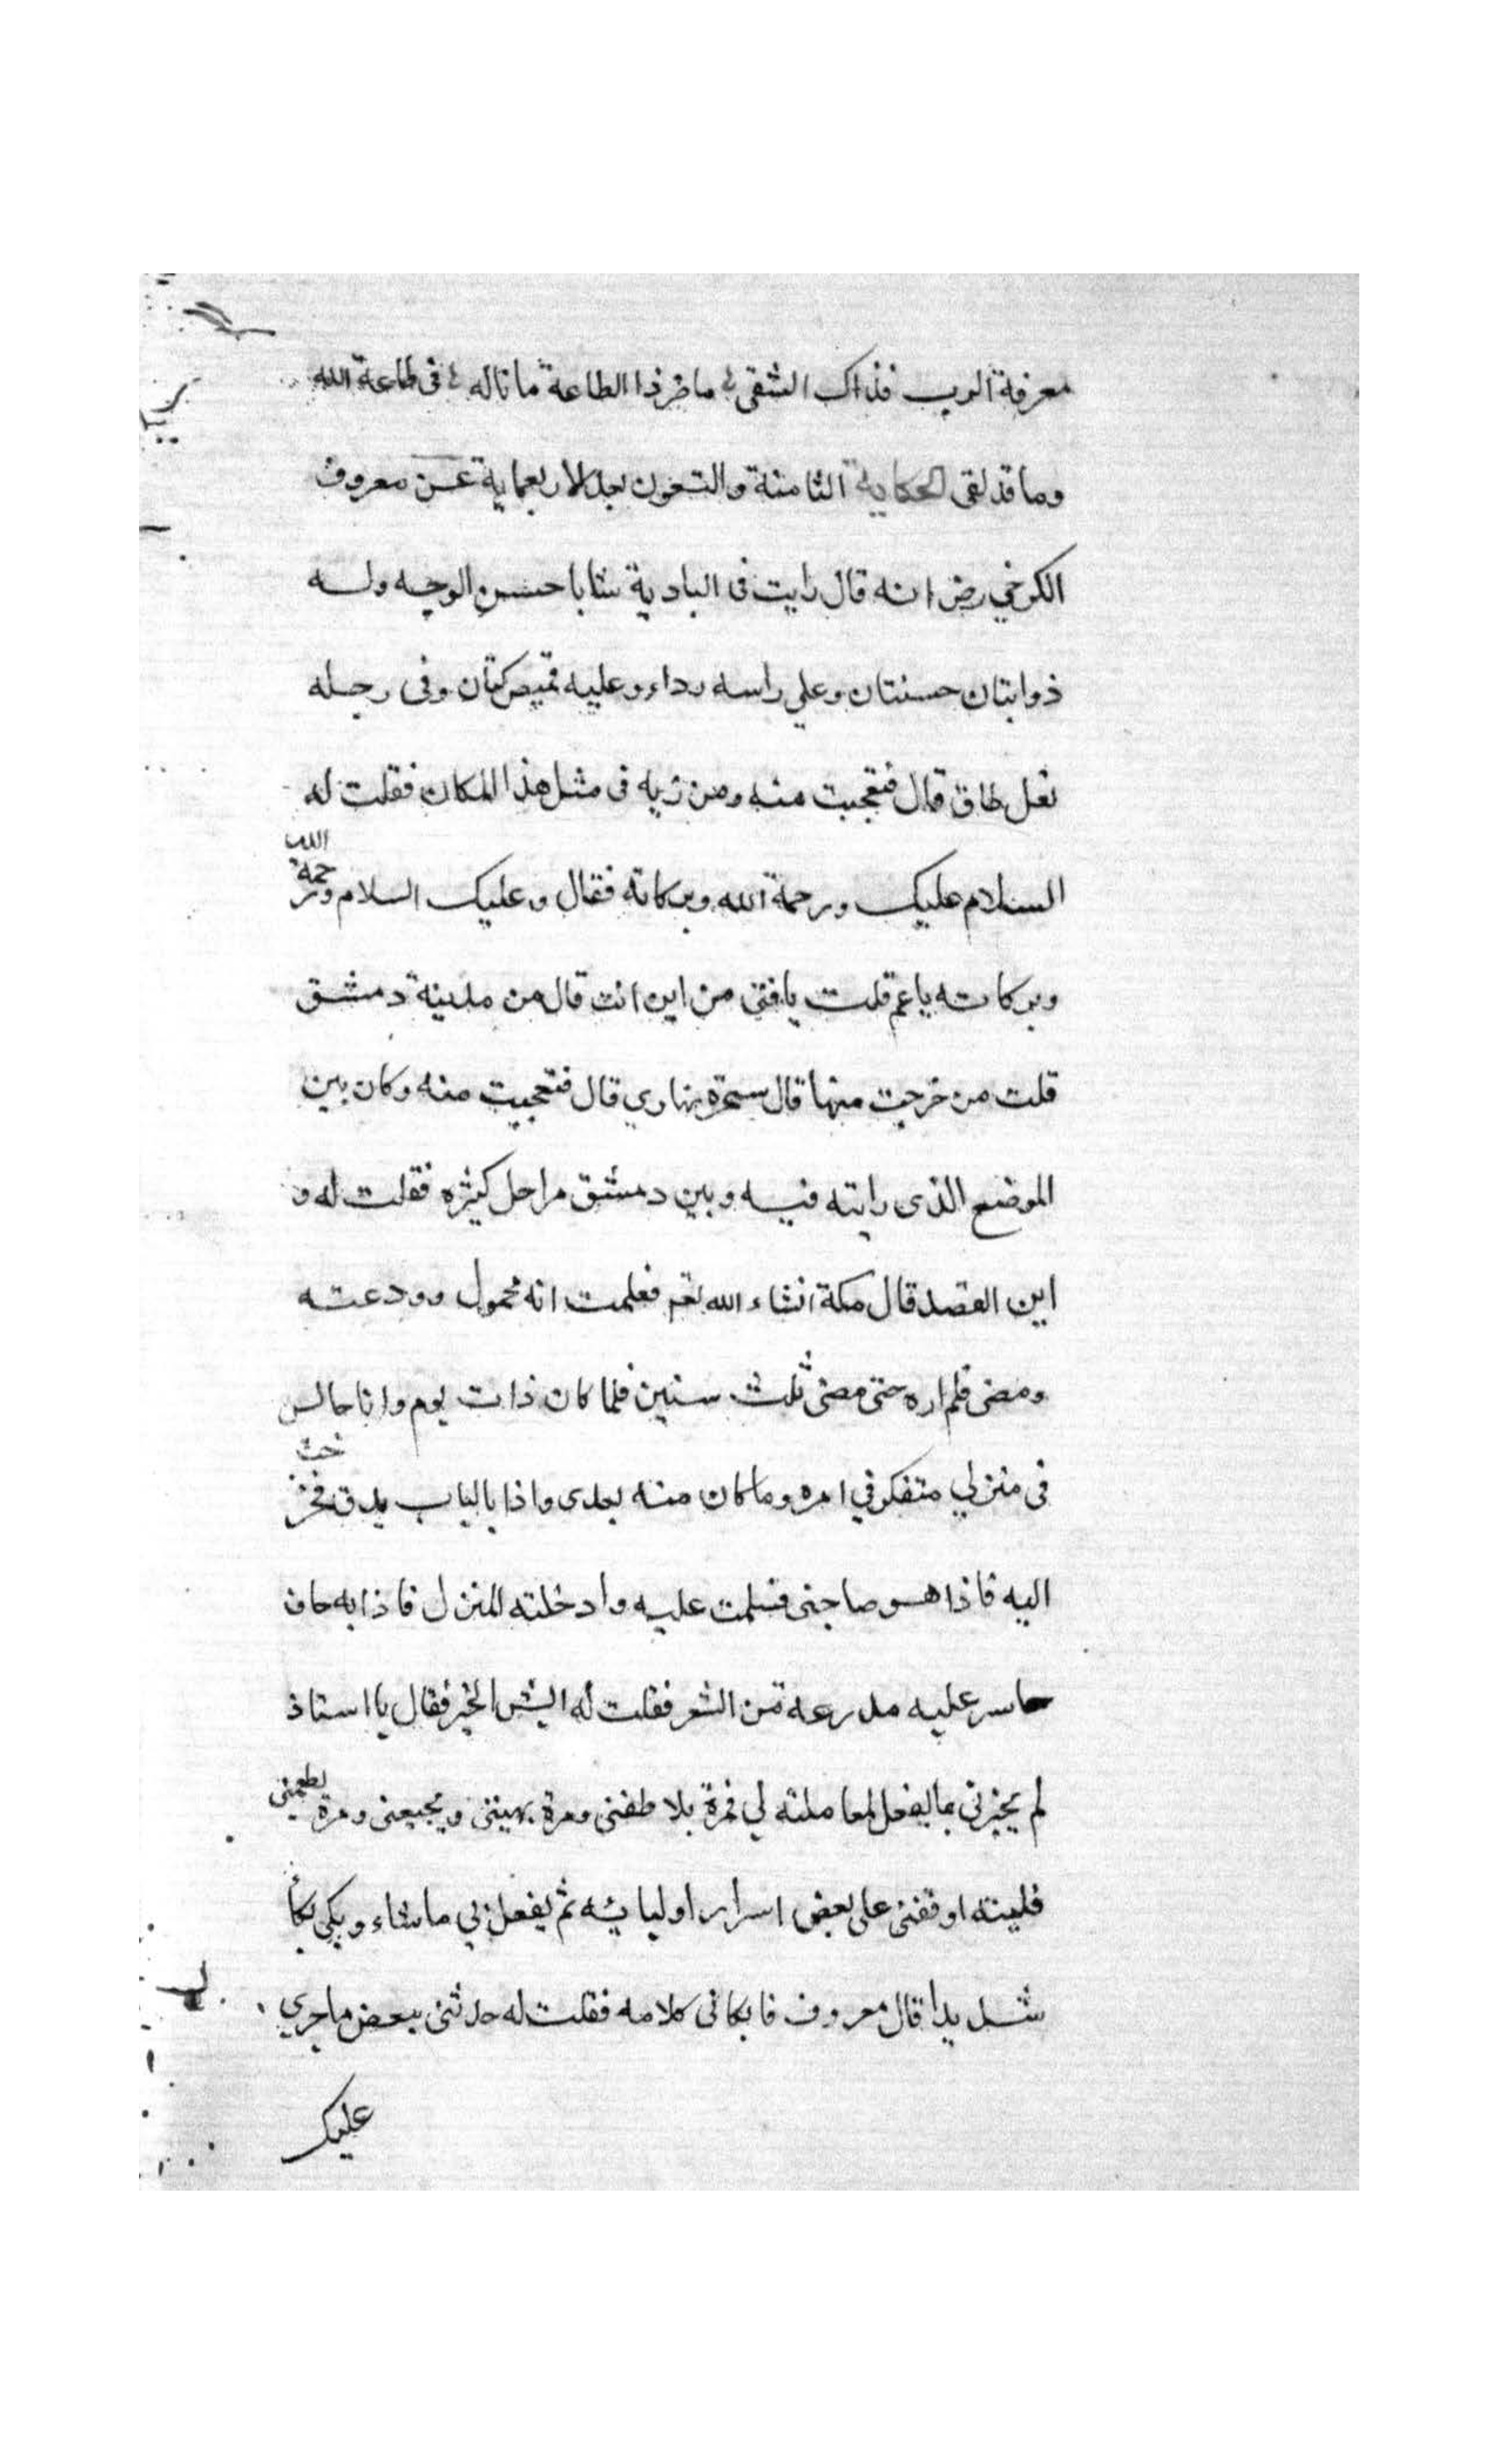 معرفة الرب فذاك الشقي ما ضر ذا الطاعة ما ناله في طاعة الله
وما قد لقى الحكاية الثامنة والتسعون بعد الاربعماية عن معروف
الكرخي رض انه قال رايت فى البادية شابا حسن الوجه وله
ذوابتان حسنتان وعلي راسه رداء وعليه قميص كتان وفى رجله
نعل طاق قال فتعجبت منه ومن زيه فى مثل هذا المكان فقلت له
السلام عليك ورحمة الله وبركاته فقال وعليك السلام ورحمة الله
وبركاته ياعم قلت يافتى من اين انت قال من مدينة دمشق
قلت من خرجت منها قال سحرة نهاري قال فتعجبت منه وكان بين
الموضع الذى رايته فيه وبين دمشق مراحل كثيره فقلت له و
اين القصد قال مكة انشاء الله تعم فعلمت انه محمول وودعته
ومضى فلم اره حتى مضى ثلث سنين فلما كان ذات يوم وانا جالس
فى منزلي متفكر في امره وما كان منه بعدى واذا بالباب يدق فخرجت
اليه فاذا هو صاحبى فسلمت عليه وادخلته المنزل فاذا به حاف
حاسر عليه مدرعة من الشعر فقلت له ايش الخبر فقال يا استاذ
لم يخبرنى بما يفعل لمعاملته لي فمرة يلاطفنى ومرة يهيننى ويجيعنى ومرة يطعمنى
فليته اوقفنى على بعض اسرار اوليائه ثم يفعل بي ماشاء وبكى بكأ
شديدا قال معروف فابكانى كلامه فقلت له حدثنى ببعض ماجري
عليك